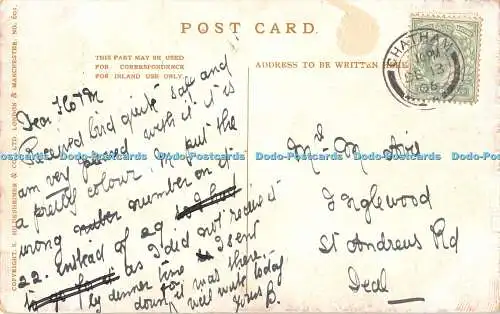 POST CARD.
THIS PART MAY BE USED
FOR CORRESPONDENCE
FOR INLAND USE ONLY
ADDRESS TO BE WRITTEN HERE
CHATHAM
Dear F & M
Received bird quite safe and
am very pleased with it it is
a pretty colour. M put the
wrong number on it
22. instead of 29
as I did not receive it
by dinner time I sent
down, it was there,
will write today
yours B.
Mrs M
Inglewood
St Andrews Rd
Deal
Dodo-Postcards Dodo-Postcards Dodo-Postcards Dodo-Postcards Dodo-Postcards
COPYRIGHT. & CO. LTD. LONDON & MANCHESTER. NO.